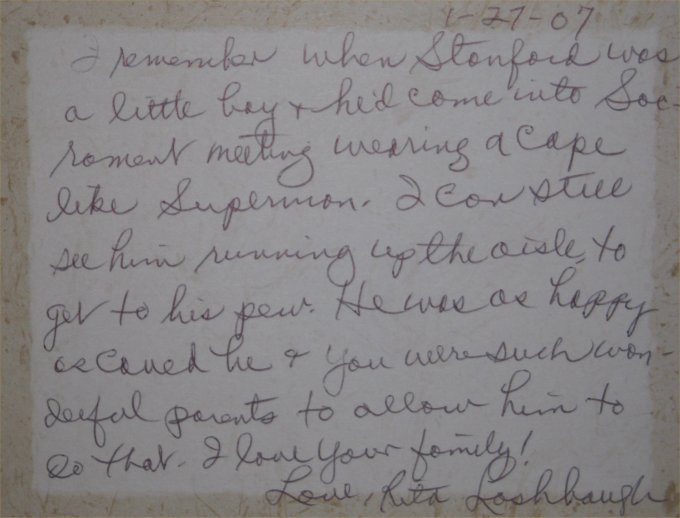 1-27-07
I remember when Stanford was
a little boy & he'd come into Sac-
rament meeting wearing a cape
like Superman. I can still
see him running up the aisle, to
get to his pew. He was as happy
as couled be & you were such won-
derful parents to allow him to
do that. I love your family!
Love, Rita Loshbaugh